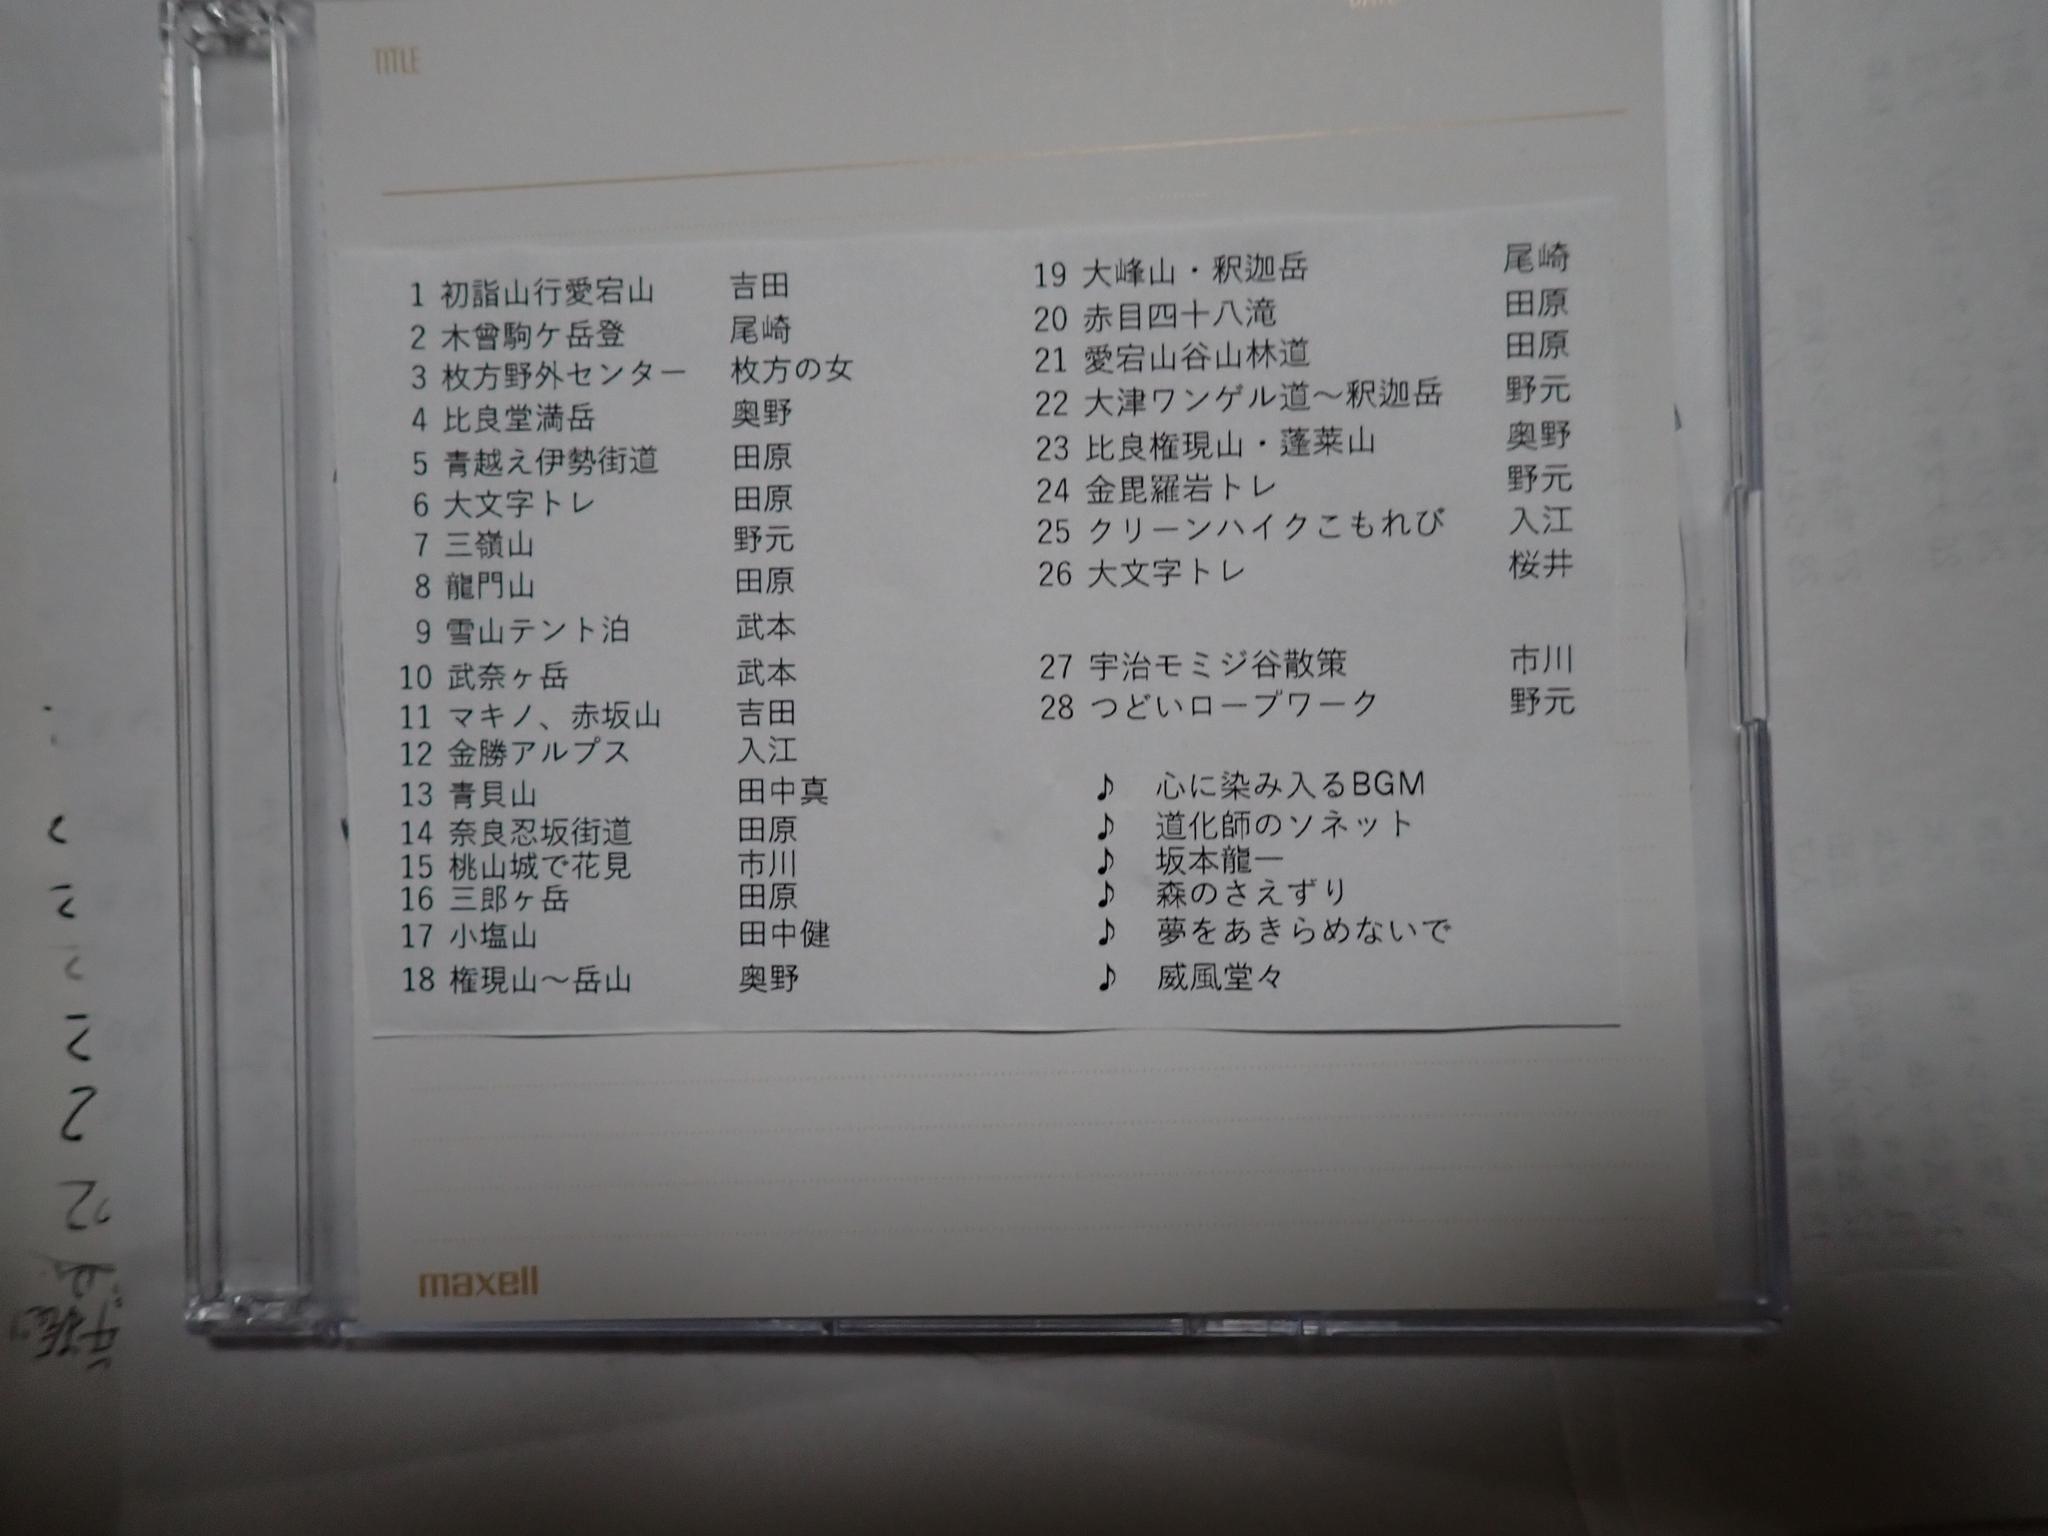 TITLE
1 初詣山行愛宕山 吉田
2 木曾駒ケ岳登 尾崎
3 枚方野外センター 枚方の女
4 比良堂満岳 奥野
5 青越え伊勢街道 田原
6 大文字トレ 田原
7 三嶺山 野元
8 龍門山 田原
9 雪山テント泊 武本
10 武奈ヶ岳 武本
11 マキノ、赤坂山 吉田
12 金勝アルプス 入江
13 青貝山 田中真
14 奈良忍坂街道 田原
15 桃山城で花見 市川
16 三郎ヶ岳 田原
17 小塩山 田中健
18 権現山～岳山 奥野
19 大峰山・釈迦岳 尾崎
20 赤目四十八滝 田原
21 愛宕山谷山林道 田原
22 大津ワンゲル道～釈迦岳 野元
23 比良権現山・蓬莱山 奥野
24 金毘羅岩トレ 野元
25 クリーンハイクこもれび 入江
26 大文字トレ 桜井
27 宇治モミジ谷散策 市川
28 つどいロープワーク 野元
♪ 心に染み入るBGM
♪ 道化師のソネット
♪ 坂本龍一
♪ 森のさえずり
♪ 夢をあきらめないで
♪ 威風堂々
maxell